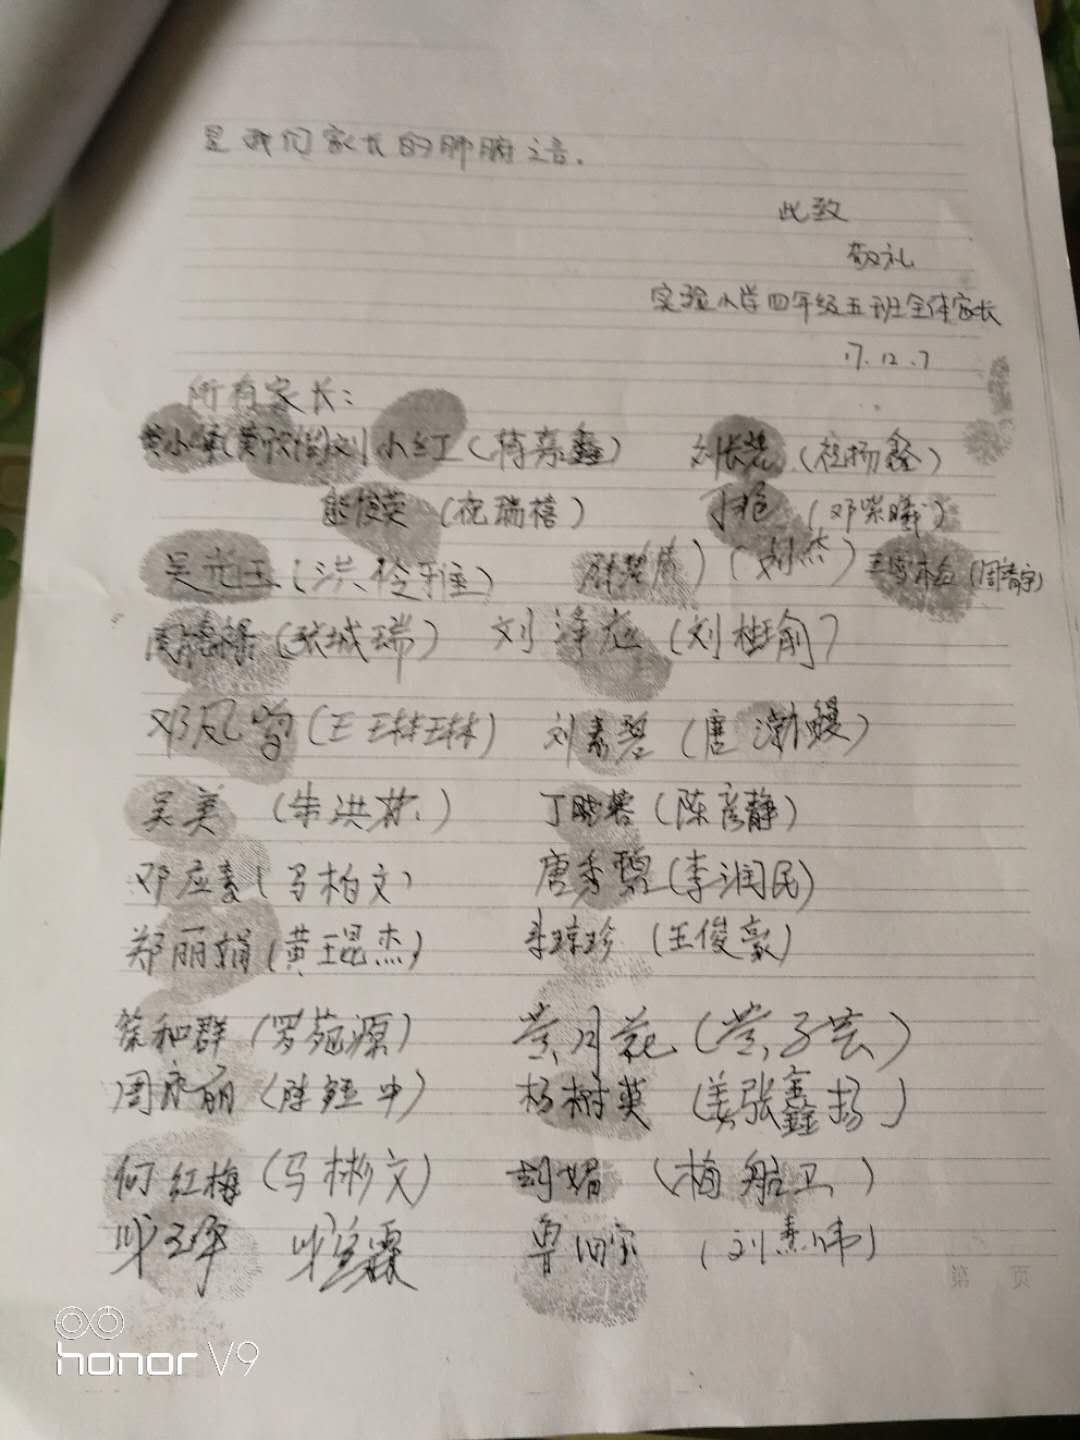 是我们家长的肺腑之言.
此致
敬礼
实验小学四年级五班全体家长
17.12.7
所有家长:
黄小 (黄欣 )刘小红(蒋嘉鑫) 刘长慧(程扬鑫)
熊俊英(祝瑞禧) 丁艳(邓紫曦)
吴光玉(洪伶雅) (刘杰) 王雪梅(周清宇)
周 (张城瑞) 刘泽 (刘桂瑜)
邓凤鸣(王琳琳) 刘素碧(唐渤鳗)
吴美(朱洪 ) 丁晓蓉(陈彦静)
邓应素(马柏文) 唐秀碧(李润民)
郑丽娟(黄琨杰) 李琼珍(王俊豪)
徐和群(罗苑源) 黄月花(黄子芸)
周康丽(陈钰中) 杨树英(姜张鑫扬)
何红梅(马彬文) 胡娟(梅航卫)
曾 (刘 伟)
第 页
honor V9